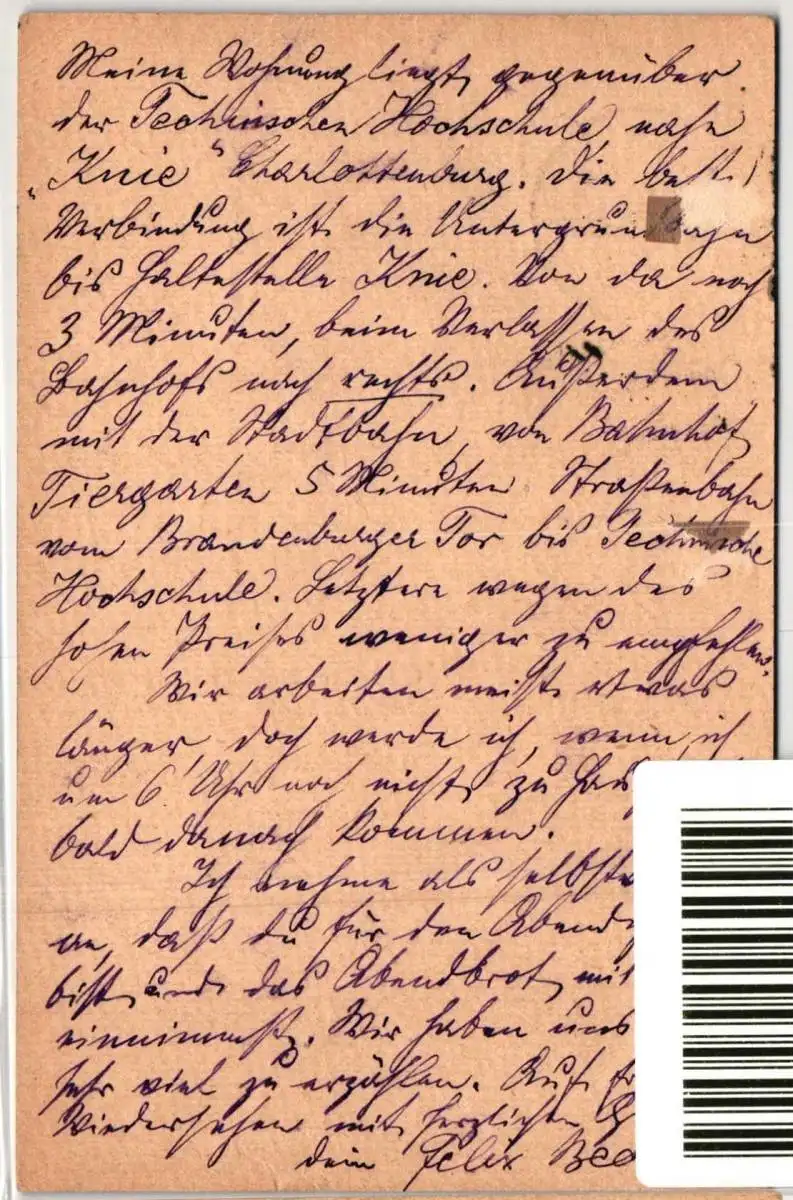 Meine Wohnung liegt gegenüber
der Technischen Hochschule, nahe
„Knie“ Charlottenburg. Die beste
Verbindung ist die Untergrundbahn
bis Haltestelle Knie. Von da noch
3 Minuten, beim Verlassen des
Bahnhofs nach rechts. Außerdem
mit der Stadtbahn, von Bahnhof
Tiergarten 5 Minuten Straßenbahn
vom Brandenburger Tor bis Technische
Hochschule. Letztere wegen des
hohen Preises weniger zu empfehlen.
Wir arbeiten meist etwas
länger, doch werde ich, wenn ich
um 6 Uhr noch nicht zu Haus
bald danach kommen.
Ich nehme als selbst
an, daß du für den Abend
bist und das Abendbrot mit
einnimmst. Wir haben uns
sehr viel zu erzählen. Auf
Wiedersehen mit herzlichen
dein Felix